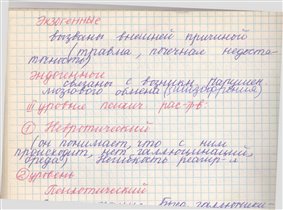 Экзогенные
вызваны внешней причиной
(травма, почечная недоста-
точность)
Эндогенные
связаны с возникн. нарушен
мозгового обмена (шизофрения)
III уровня психич. рас-в:
① Невротический
(он понимает, что с ним
происходит, нет галлюцинаций,
бреда)
② уровень
Психотический